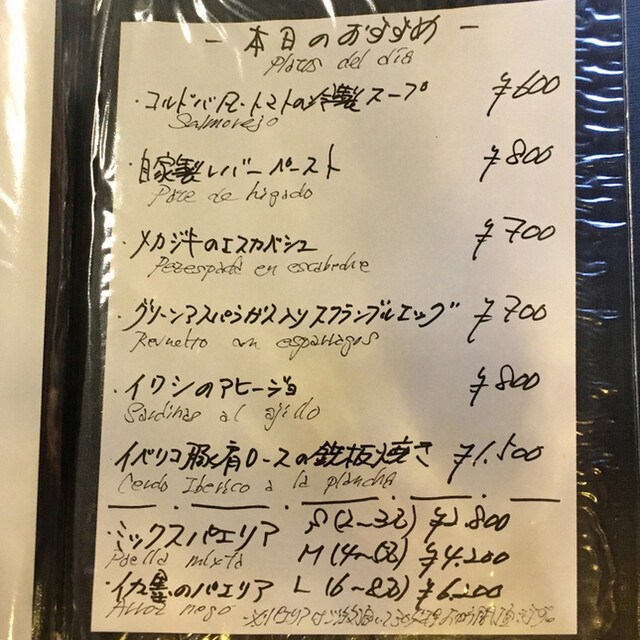 - 本日のおすすめ -
Platos del día
・コルドバ風トマトの冷製スープ ¥600
Salmorejo
・自家製レバーペースト ¥800
Pate de higado
・メカジキのエスカベシュ ¥700
Pezespada en escabeche
・グリーンアスパラガス入りスクランブルエッグ ¥700
Revuelto con esparragos
・イワシのアヒージョ ¥800
Sardinas al ajillo
・イベリコ豚肩ロースの鉄板焼き ¥1,500
Cerdo Iberico a la plancha
ミックスパエリア S(2~3名) ¥2.800
Paella mixta M(4~5名) ¥4.200
イカ墨のパエリア L(6~8名) ¥6.200
Arroz nego ※パエリアはご注文